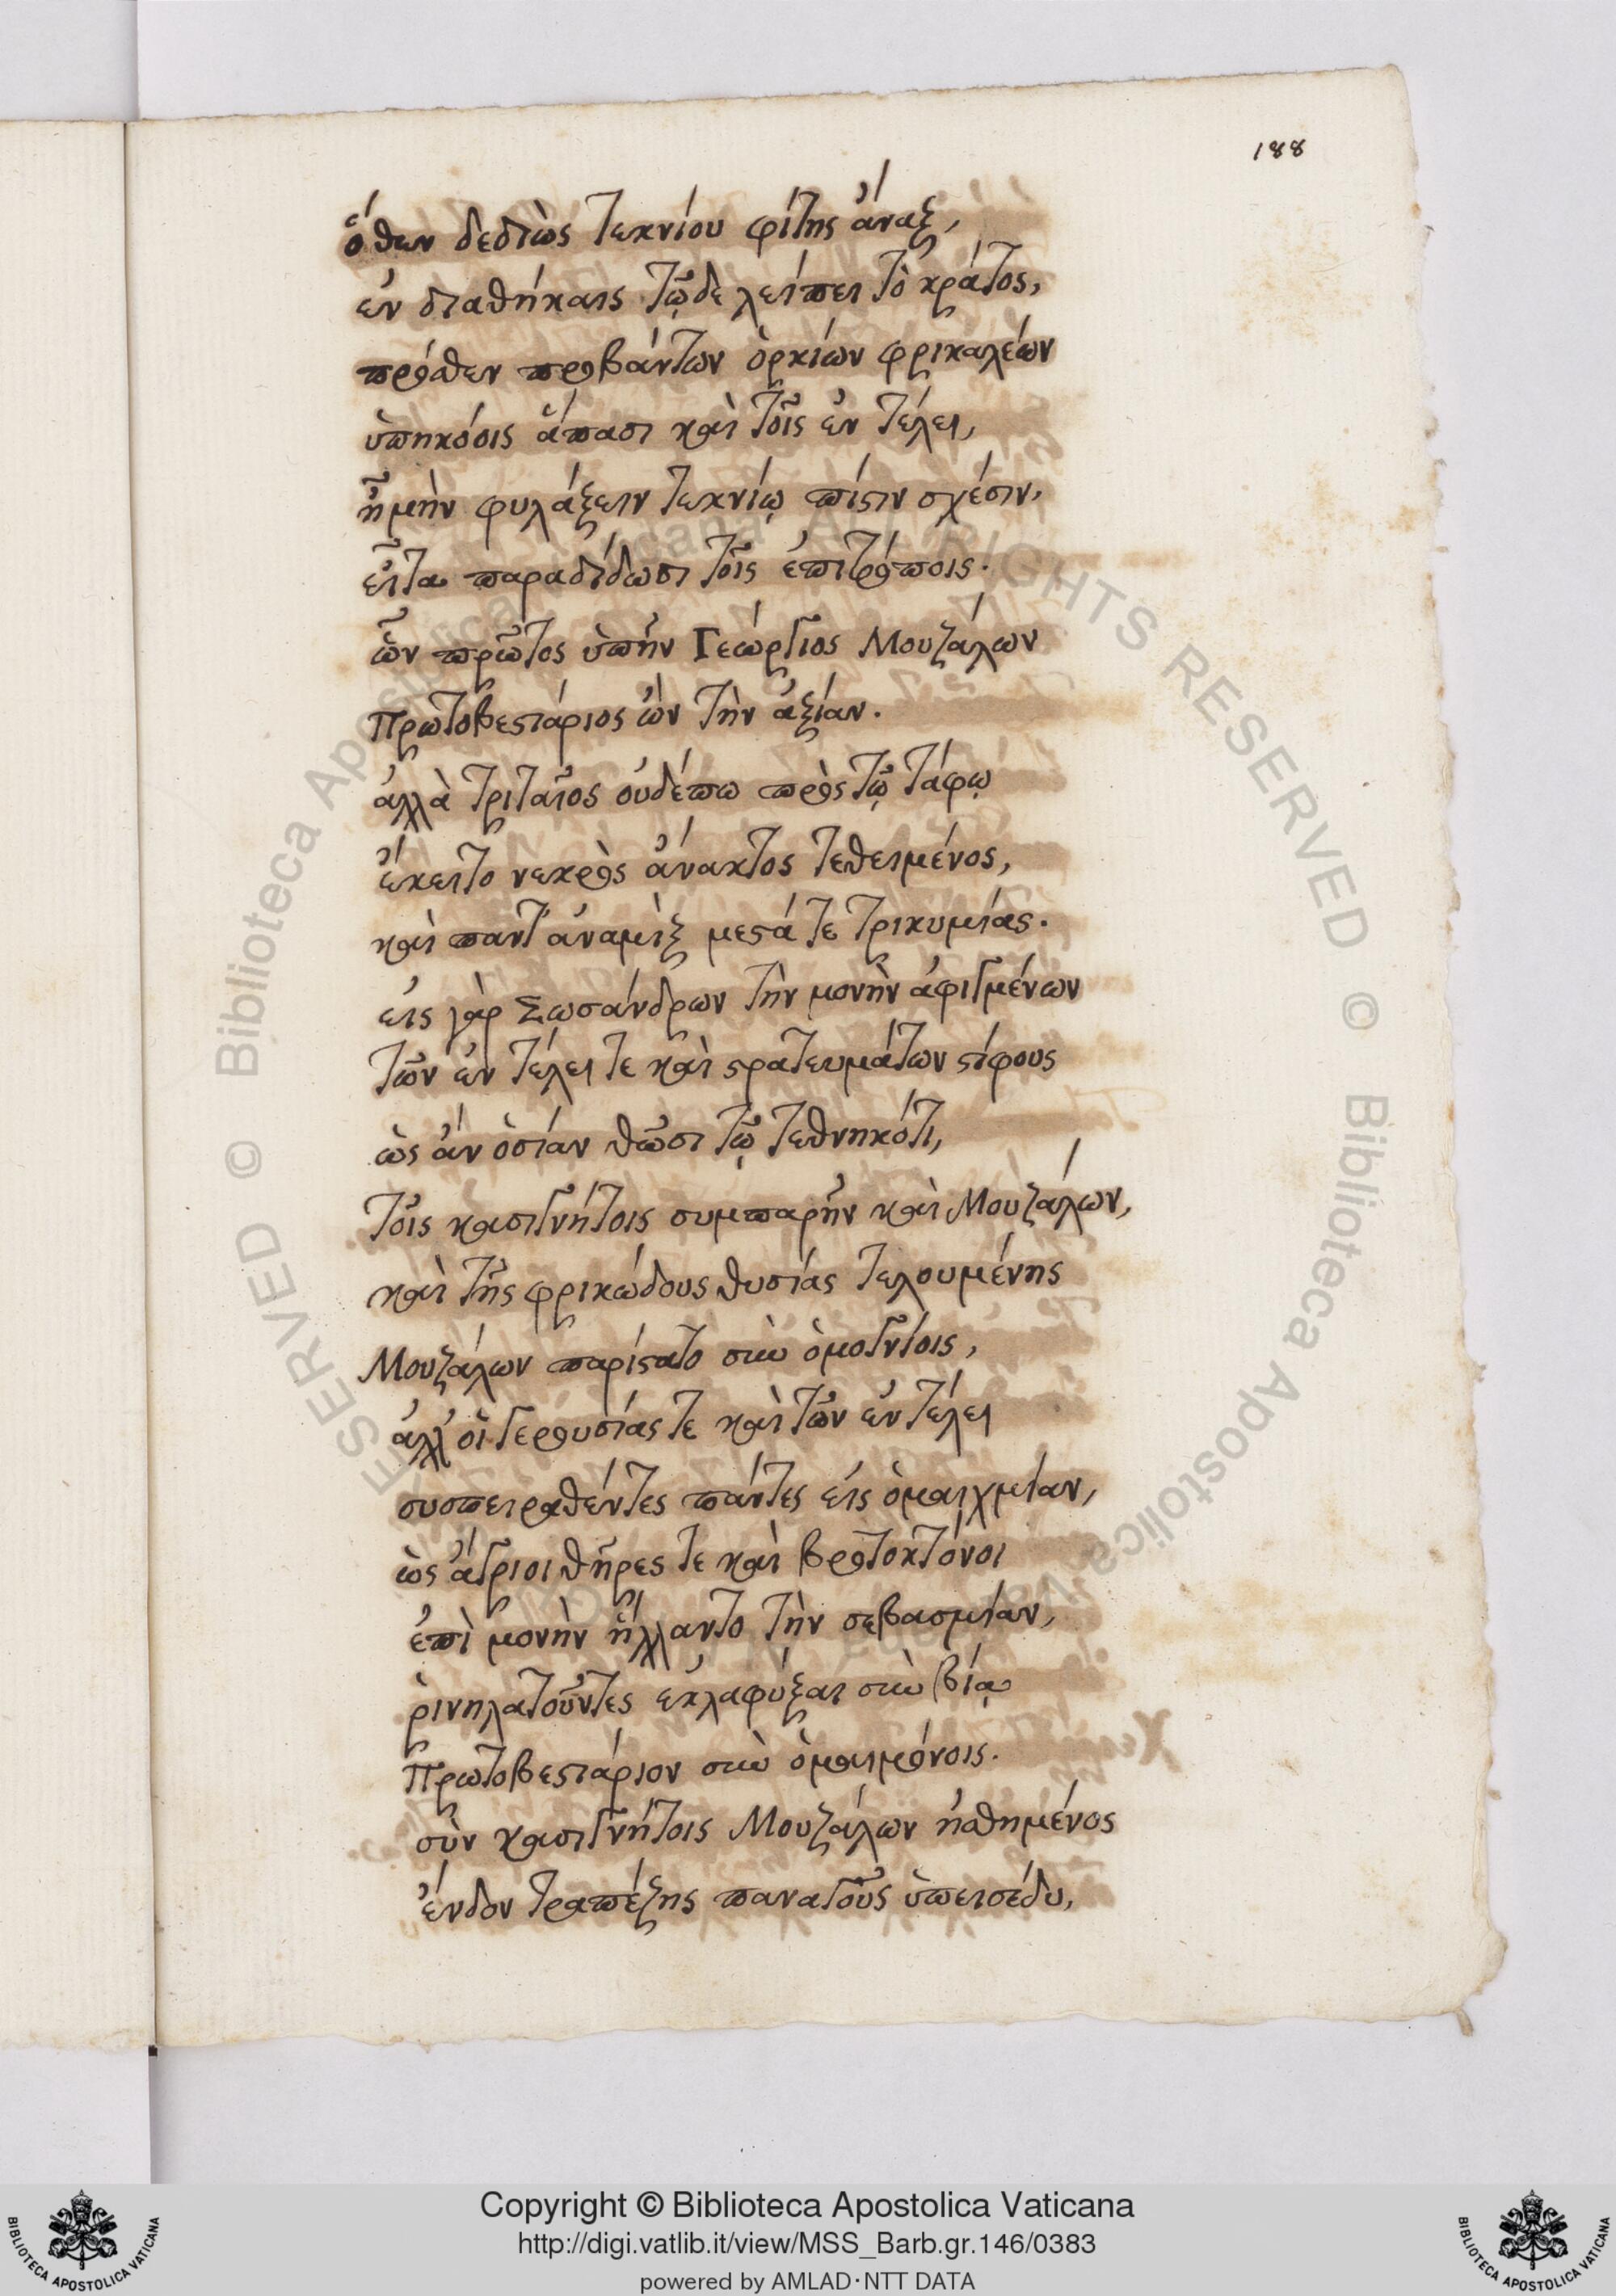 188
ὅθεν δεδιὼς τεκνίου φίτης ἄναξ,
ἐν διαθήκαις τῷδε λείπει τὸ κράτος,
πρόσθεν προβάντων ὁρκίων φρικαλέων
ὑπηκόοις ἅπασι καὶ τοῖς ἐν τέλει,
ἦ μὴν φυλάξειν τεκνίῳ πίστιν σχέσιν,
εἶτα παραδίδωσι τοῖς ἐπιτρόποις.
ὧν πρῶτος ὑπῆν Γεώργιος Μουζάλων
Πρωτοβεστάριος ὢν τὴν ἀξίαν.
ἀλλὰ τριταῖος οὐδέπω πρὸς τῷ τάφῳ
ἔκειτο νεκρὸς ἄνακτος τεθειμένος,
καὶ παντ' ἀναμὶξ μεστά τε τρικυμίας.
εἰς γὰρ Σωσάνδρων τὴν μονὴν ἀφιγμένων
τῶν ἐν τέλει τε καὶ στρατευμάτων στίφους
ὡς ἂν ὁσίαν θῶσι τῷ τεθνηκότι,
τοῖς κασιγνήτοις συμπαρῆν καὶ Μουζάλων,
καὶ τῆς φρικώδους θυσίας τελουμένης
Μουζάλων παρίστατο σὺν ὁμογνίοις,
ἀλλ' οἱ γερουσίας τε καὶ τῶν ἐν τέλει
συσπειραθέντες πάντες εἰς ὁμαιχμίαν,
ὡς ἄγριοι θῆρες τε καὶ βροτοκτόνοι
ἐπὶ μονὴν ἥλλαντο τὴν σεβασμίαν,
ῥινηλατοῦντες ἐκλαφύξαι σὺν βίᾳ
Πρωτοβεστάριον σὺν ὁμαίμονοις.
σὺν κασιγνήτοις Μουζάλων ᾐσθημένος
ἔνδον τραπέζης παναγοῦς ὑπεισέδυ,
Copyright © Biblioteca Apostolica Vaticana
http://digi.vatlib.it/view/MSS_Barb.gr.146/0383
powered by AMLAD·NTT DATA